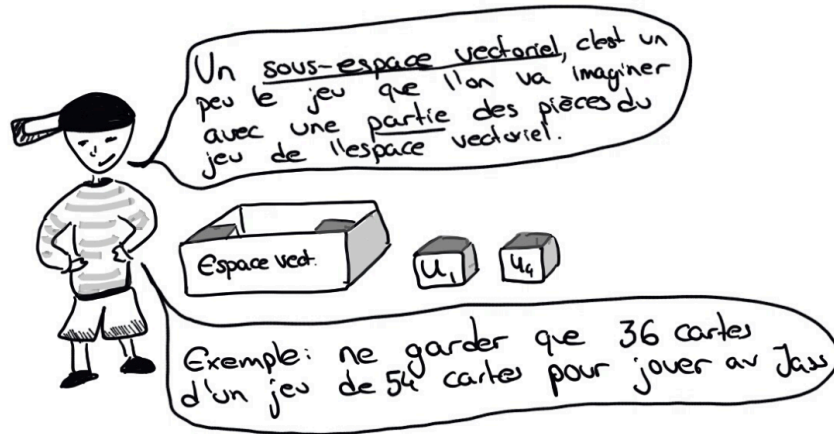 Un sous-espace vectoriel, c'est un
peu le jeu que l'on va imaginer
avec une partie des pièces du
jeu de l'espace vectoriel.
Espace vect.
u₁
u₄
Exemple: ne garder que 36 cartes
d'un jeu de 54 cartes pour jouer au Jass